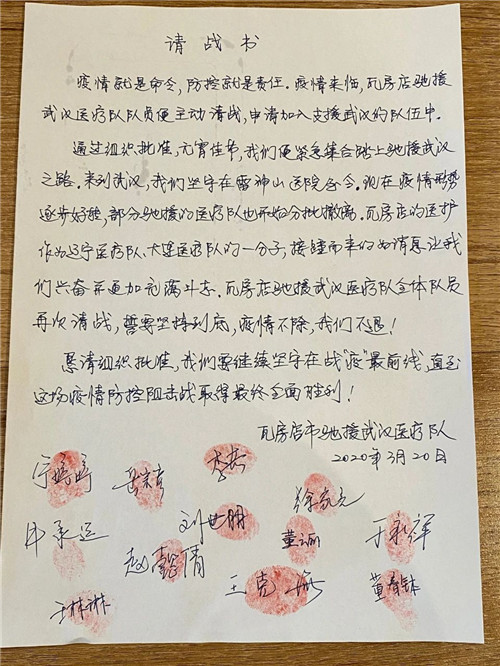 请战书
疫情就是命令,防控就是责任。疫情来临,瓦房店驰援
武汉医疗队队员便主动请战,申请加入支援武汉的队伍中。
通过组织批准,元宵佳节,我们便紧急集合踏上驰援武汉
之路。来到武汉,我们坚守在雷神山医院至今。现在疫情形势
逐步好转,部分驰援的医疗队也开始分批撤离。瓦房店的医护
作为辽宁医疗队、大连医疗队的一分子,接踵而来的好消息让我
们兴奋并更加充满斗志。瓦房店驰援武汉医疗队全体队员
再次请战,誓要坚持到底,疫情不除,我们不退!
恳请组织批准,我们要继续坚守在战"疫"最前线,直至
这场疫情防控阻击战取得最终全面胜利!
瓦房店市驰援武汉医疗队
2020年3月20日
宁婷婷
徐家元
刘世明
董丽
于永祥
赵懿倩
王克
王林琳